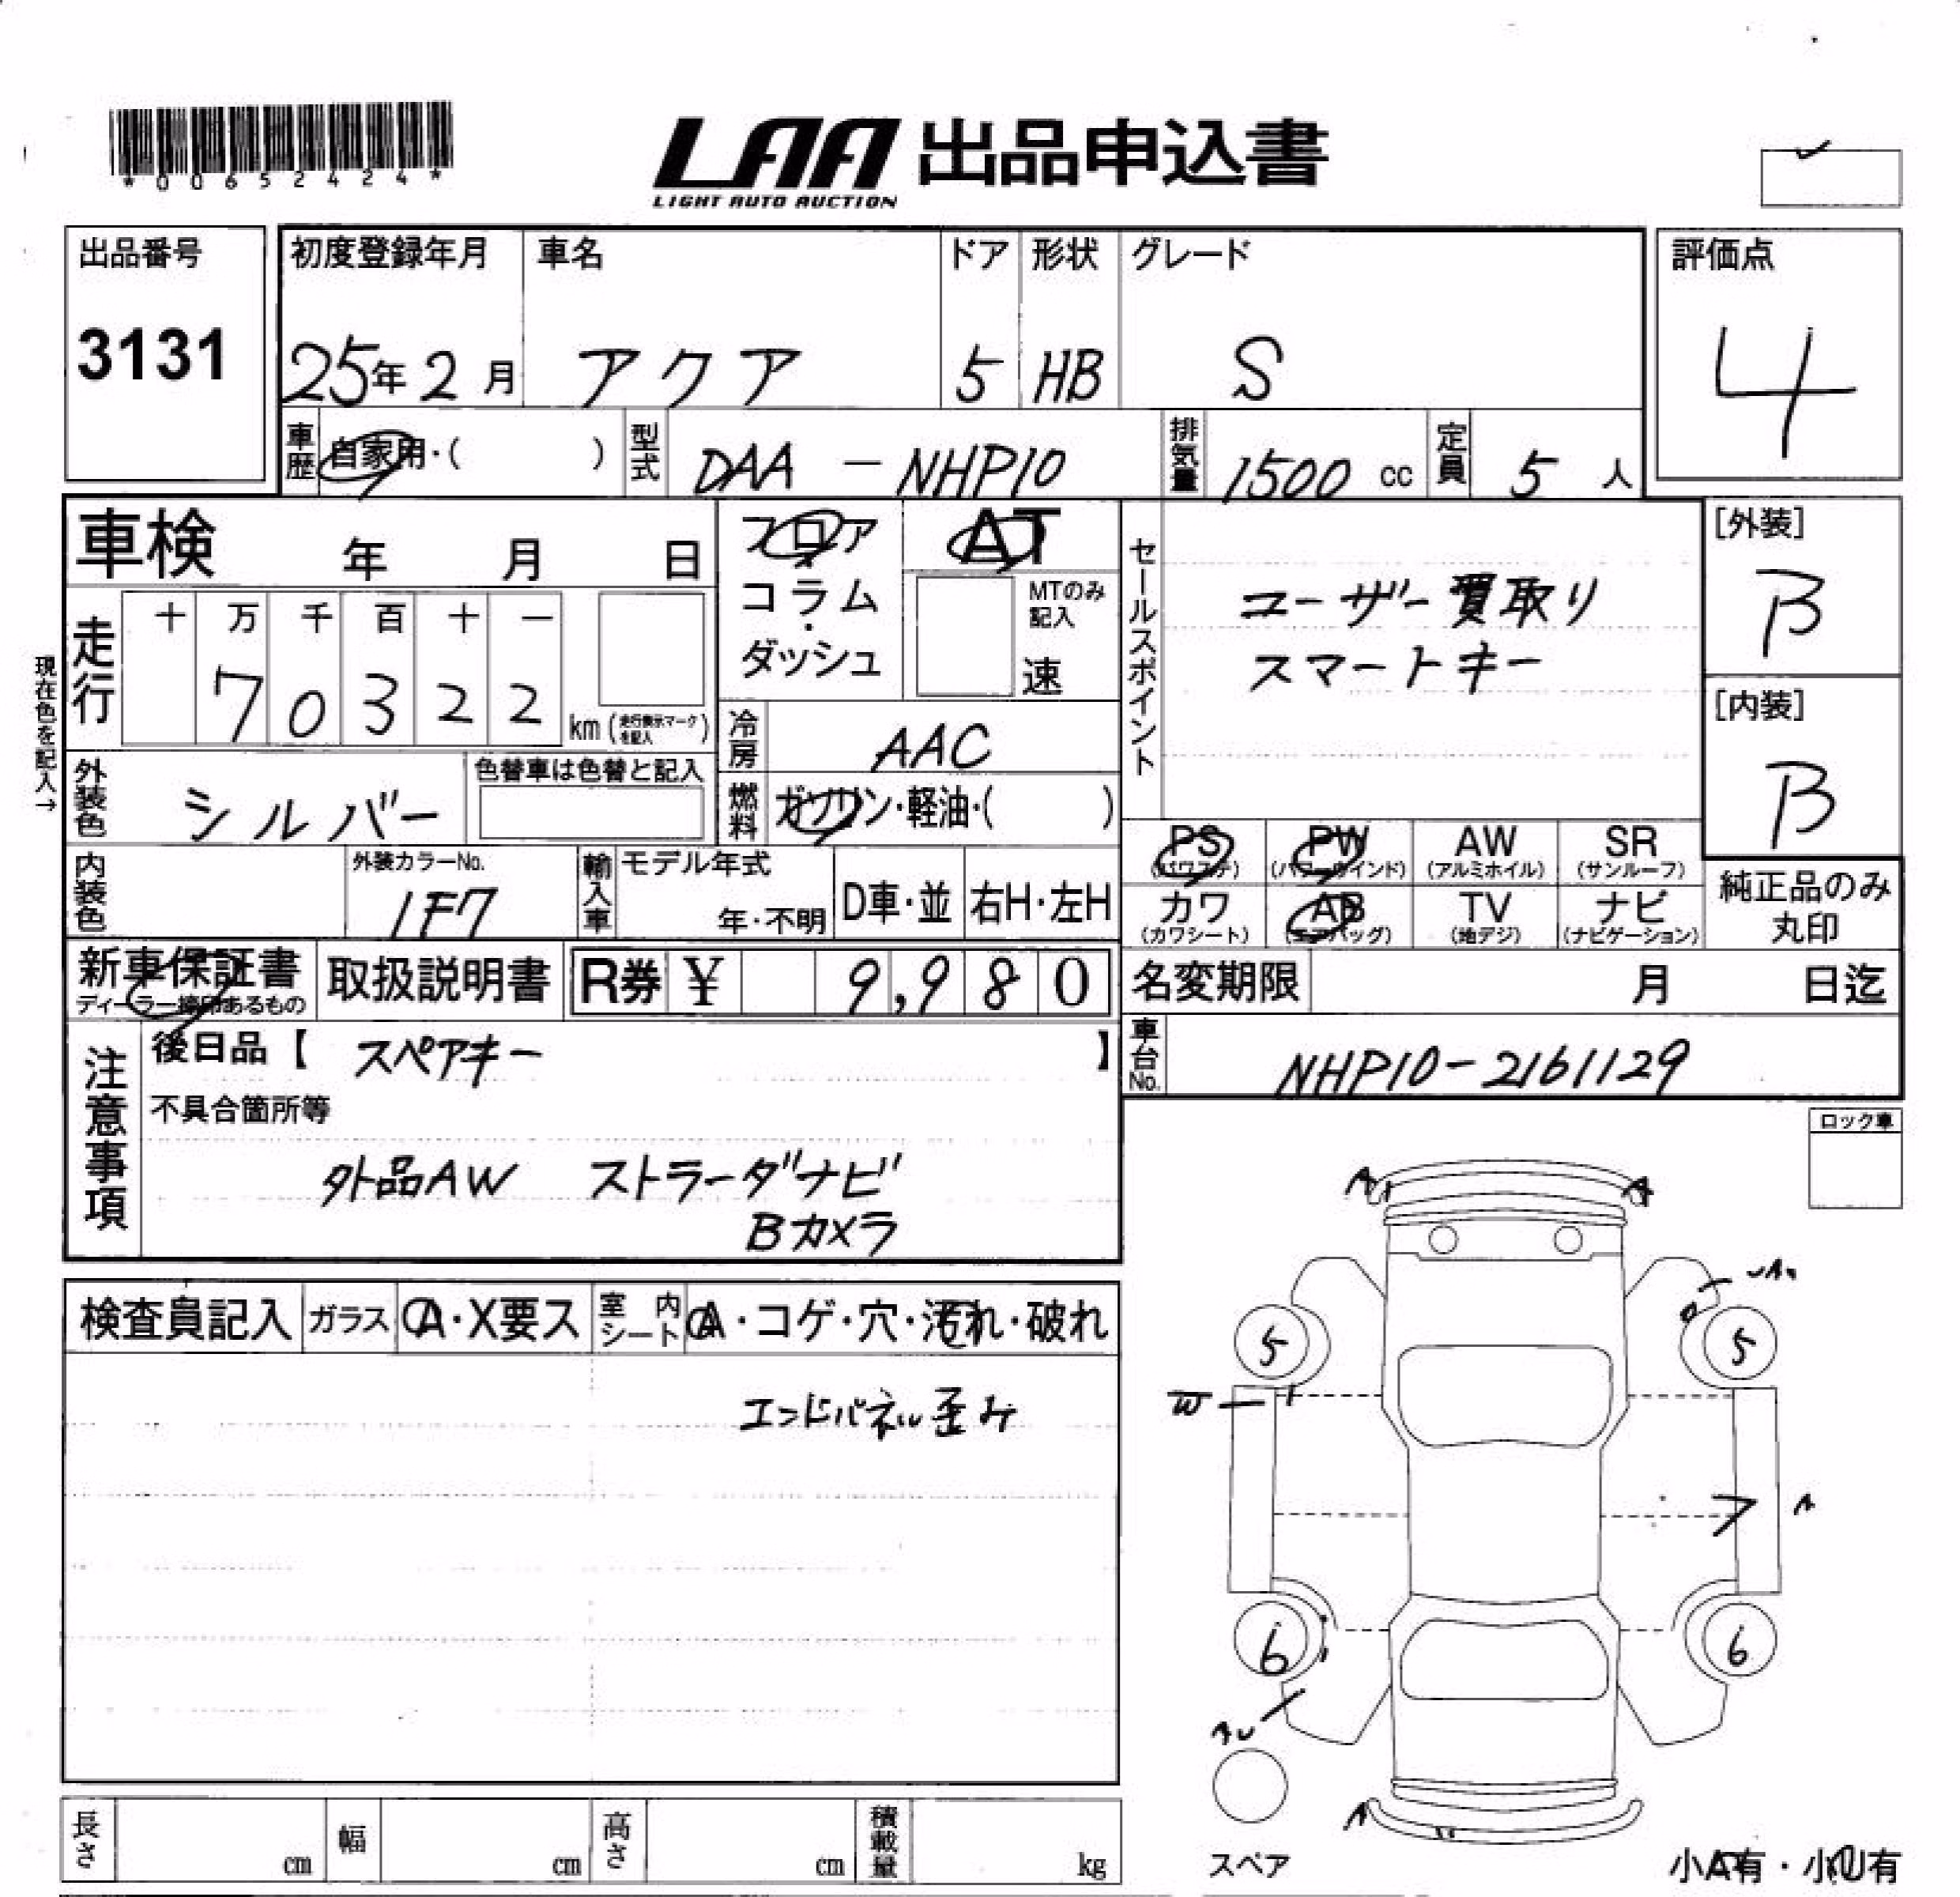 *00652424*
LAA 出品申込書
LIGHT AUTO AUCTION
出品番号
3131
初度登録年月 車名 ドア 形状 グレード
25年2月 アクア 5 HB S
評価点
4
車歴 自家用・( ) 型式 DAA-NHP10 排気量 1500 cc 定員 5 人
車検 年 月 日
フロア
コラム
・
ダッシュ
AT
MTのみ
記入
速
現在色を記入→
走行
十 万 千 百 十 一
7 0 3 2 2
km (走行表示マークを記入)
冷房 AAC
燃料 ガソリン・軽油・( )
外装色 シルバー
色替車は色替と記入
内装色
外装カラーNo.
1F7
輸入車
モデル年式
年・不明
D車・並 右H・左H
セールスポイント
ユーザー買取り
スマートキー
[外装]
B
[内装]
B
PS AW SR
PW
(パワステ) (パワーウインド) (アルミホイル) (サンルーフ)
カワ AB TV ナビ
(カワシート) (エアバッグ) (地デジ) (ナビゲーション)
純正品のみ
丸印
新車保証書
ディーラー捺印あるもの
取扱説明書
R券 ¥ 9,980
名変期限 月 日迄
車台No. NHP10-2161129
注意事項
後日品【 スペアキー 】
不具合箇所等
外品AW ストラーダナビ
Bカメラ
ロック車
検査員記入 ガラス A・X要ス 室内シート A・コゲ・穴・汚れ・破れ
エンドパネル歪み
A A
5 5
W
A
6 6
AU
A
スペア
小A有・小U有
長さ cm 幅 cm 高さ cm 積載量 kg